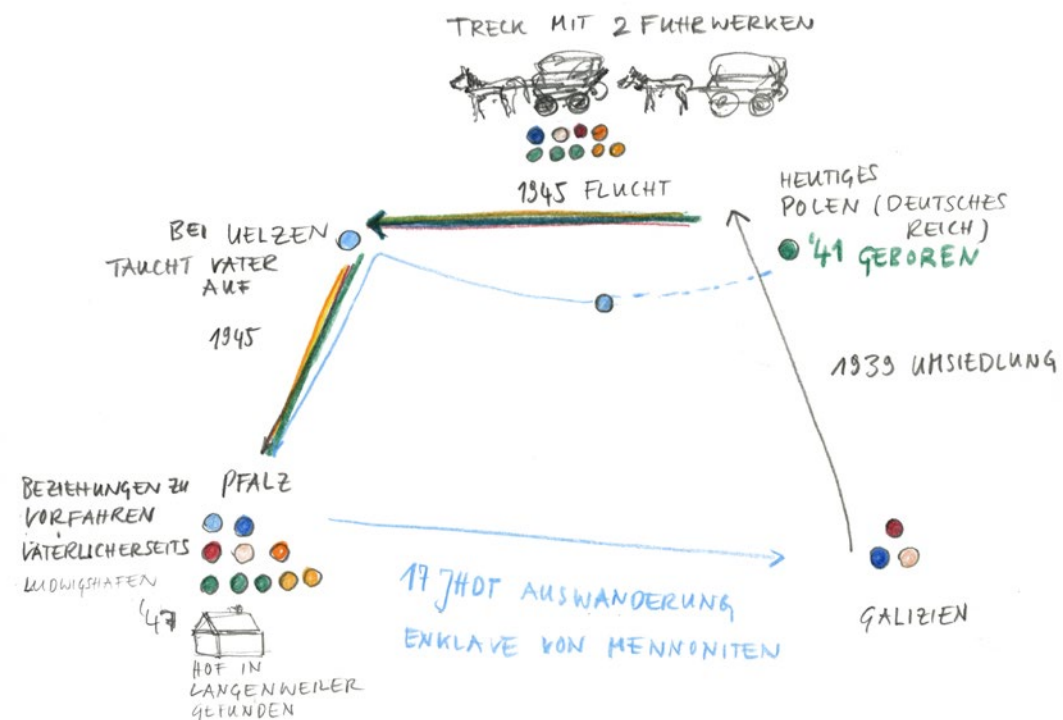 TRECK MIT 2 FUHRWERKEN
1945 FLUCHT
HEUTIGES
POLEN (DEUTSCHES
REICH)
'41 GEBOREN
BEI UELZEN
TAUCHT VATER
AUF
1945
1939 UMSIEDLUNG
BEZIEHUNGEN ZU
VORFAHREN
VÄTERLICHERSEITS
LUDWIGSHAFEN
PFALZ
'47
HOF IN
LANGENWEILER
GEFUNDEN
17 JHDT AUSWANDERUNG
ENKLAVE VON MENNONITEN
GALIZIEN